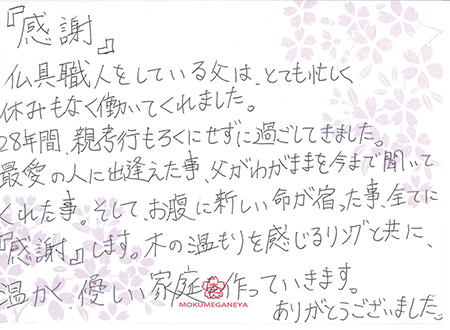 『感謝』
仏具職人をしている父は、とても忙しく
休みもなく働いてくれました。
28年間、親孝行もろくにせずに過ごしてきました。
最愛の人に出逢えた事、父がわがままを今まで聞いて
くれた事。そして、お腹に新しい命が宿った事、全てに
『感謝』します。木の温もりを感じるリングと共に、
温かく、優しい家庭を作っていきます。
ありがとうございました。
MOKUMEGANEYA